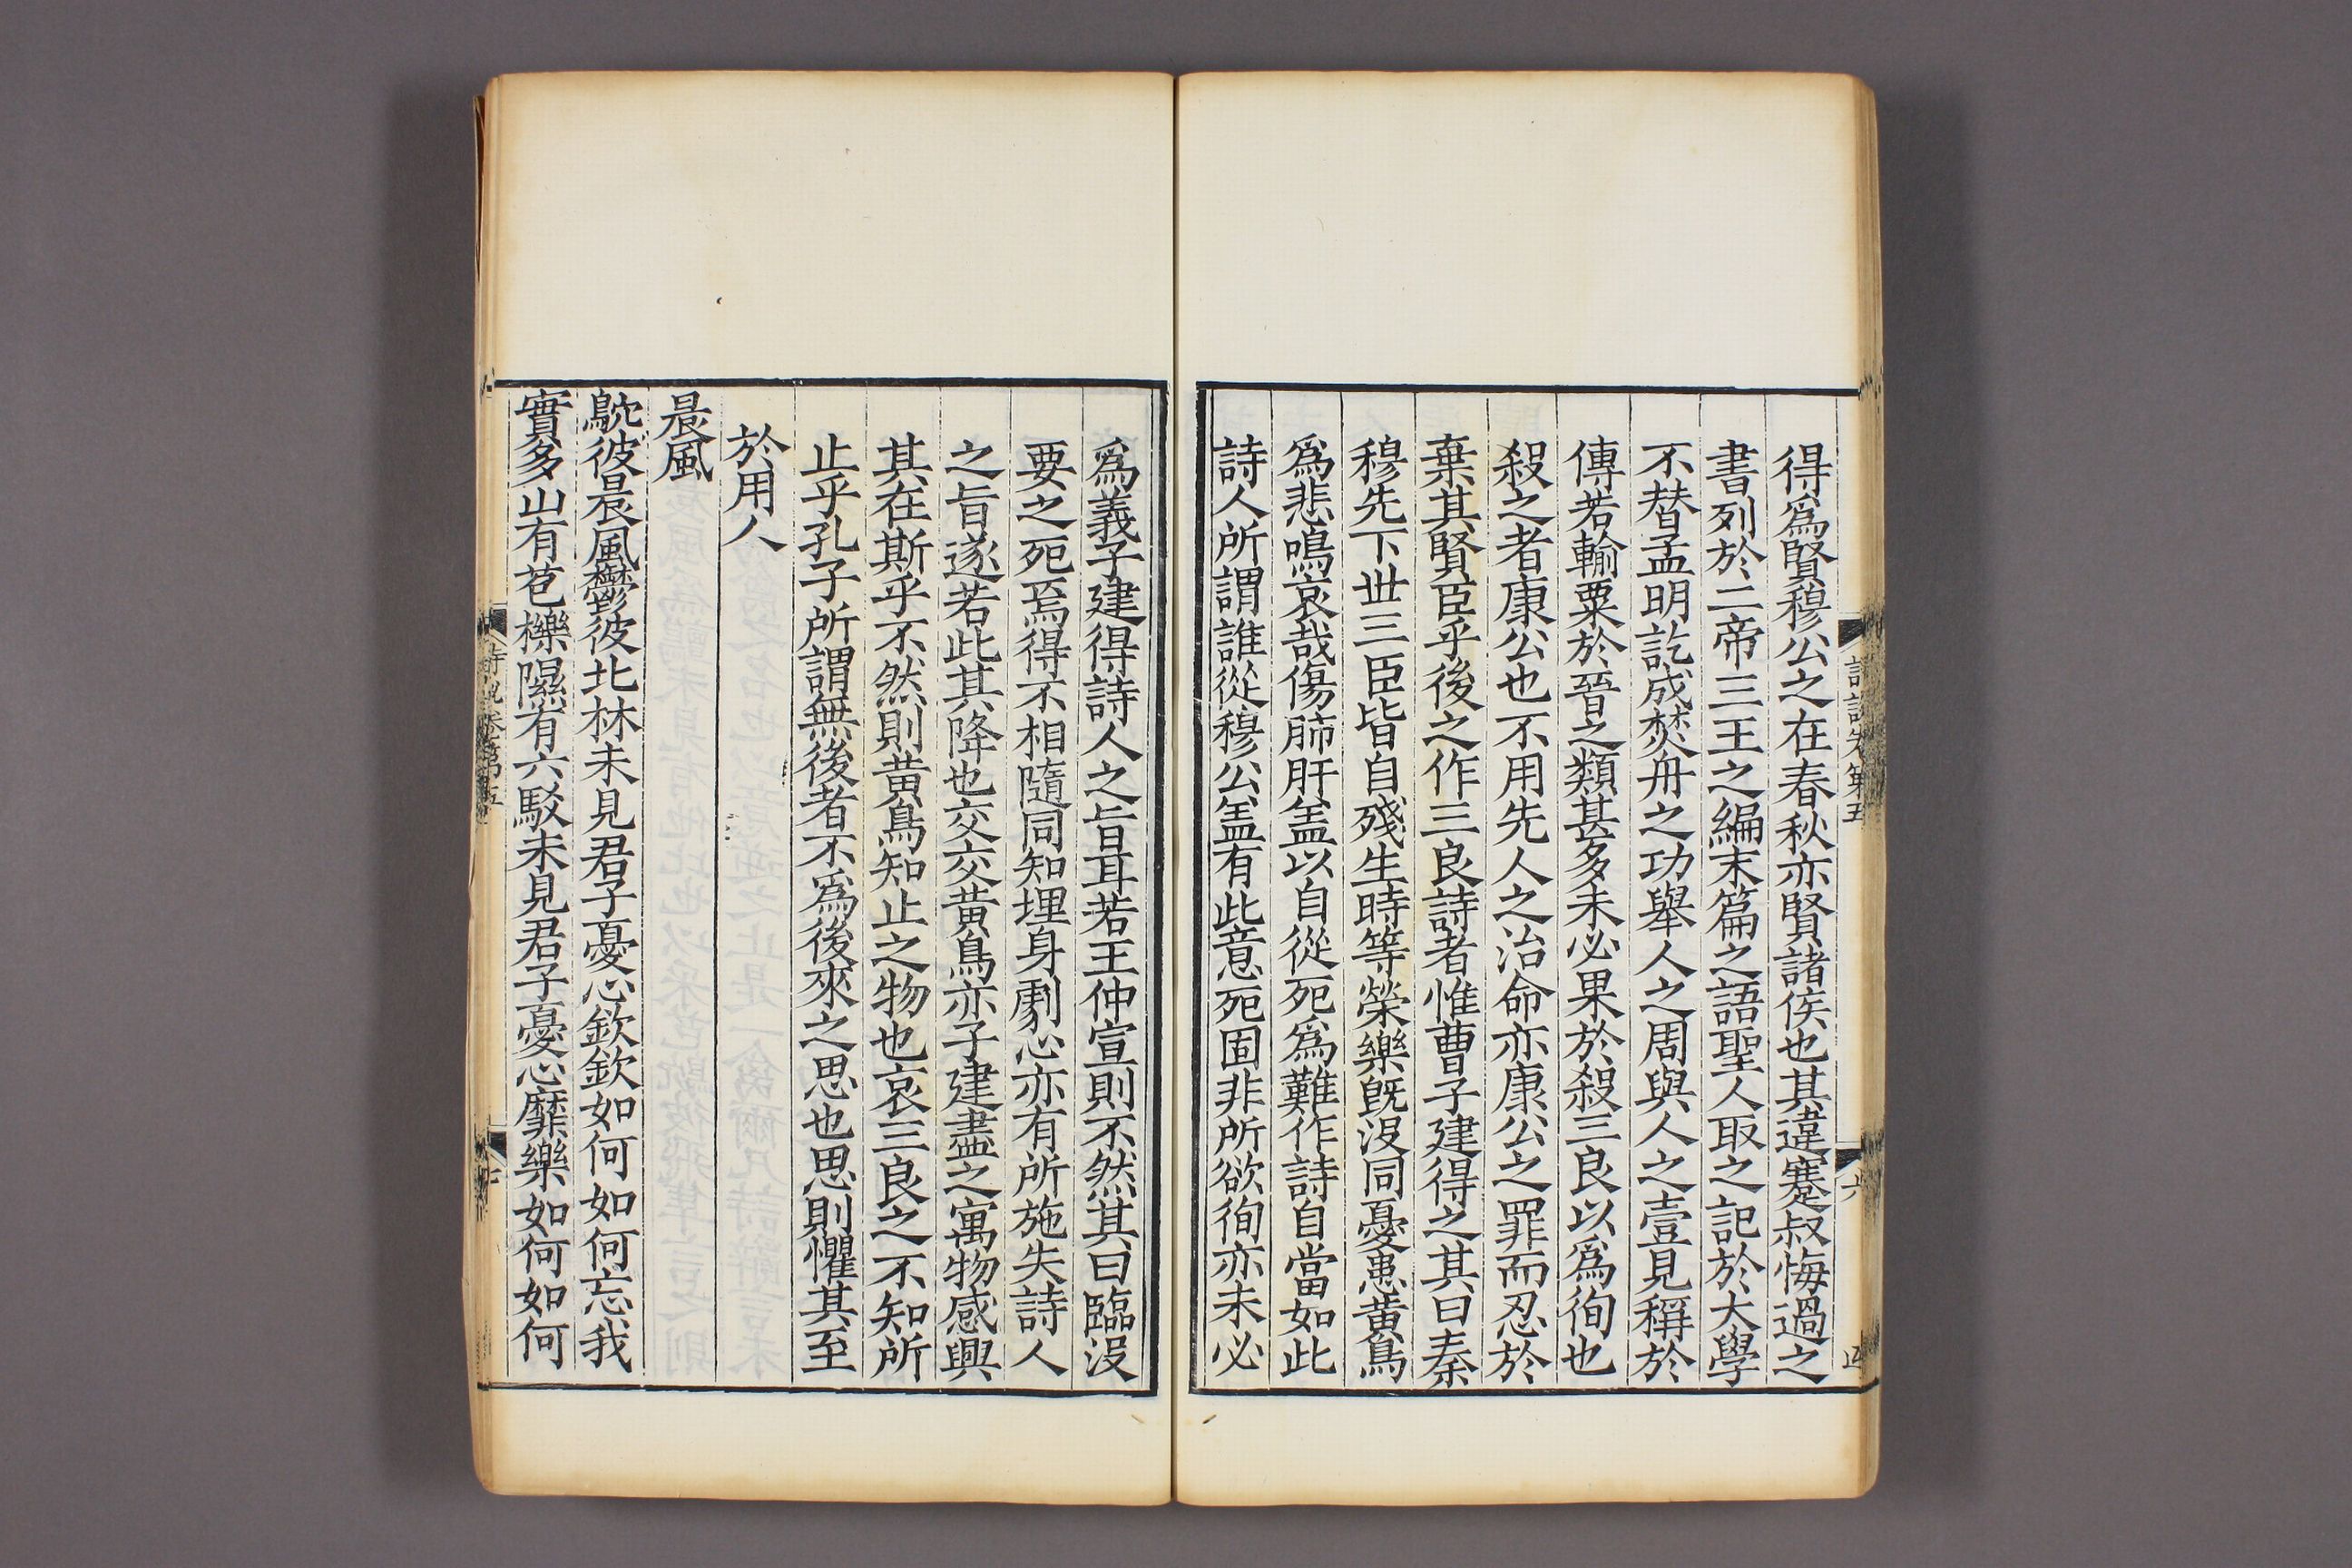 得爲賢穆公之在春秋亦賢諸侯也其違蹇叔悔過之
書列於二帝三王之編末篇之語聖人取之記於大學
不替孟明訖成焚舟之功舉人之周與人之壹見稱於
傳若輸粟於晉之類甚多未必果於殺三良以爲徇也
殺之者康公也不用先人之治命亦康公之罪而忍於
棄其賢臣乎後之作三良詩者惟曹子建得之其曰秦
穆先下世三臣皆自殘生時等榮樂旣沒同憂患黃鳥
爲悲鳴哀哉傷肺肝盖以自從死爲難作詩自當如此
詩人所謂誰從穆公盖有此意死固非所欲徇亦未必
詩說卷第五
六
爲義子建得詩人之旨耳若王仲宣則不然其曰臨沒
要之死焉得不相隨同知埋身劇心亦有所施失詩人
之旨遂若此其降也交交黃鳥亦子建盡之寓物感興
其在斯乎不然則黃鳥知止之物也哀三良之不知所
止乎孔子所謂無後者不爲後來之思也思則懼其至
於用人
晨風
鴥彼晨風鬱彼北林未見君子憂心欽欽如何如何忘我
實多山有苞櫟隰有六駮未見君子憂心靡樂如何如何
詩說卷第五
七